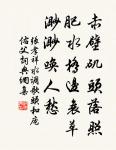 赤壁矶头落照
肥水桥边衰草
渺渺唤人愁
张孝祥水调歌头和庞
佑父词典网集